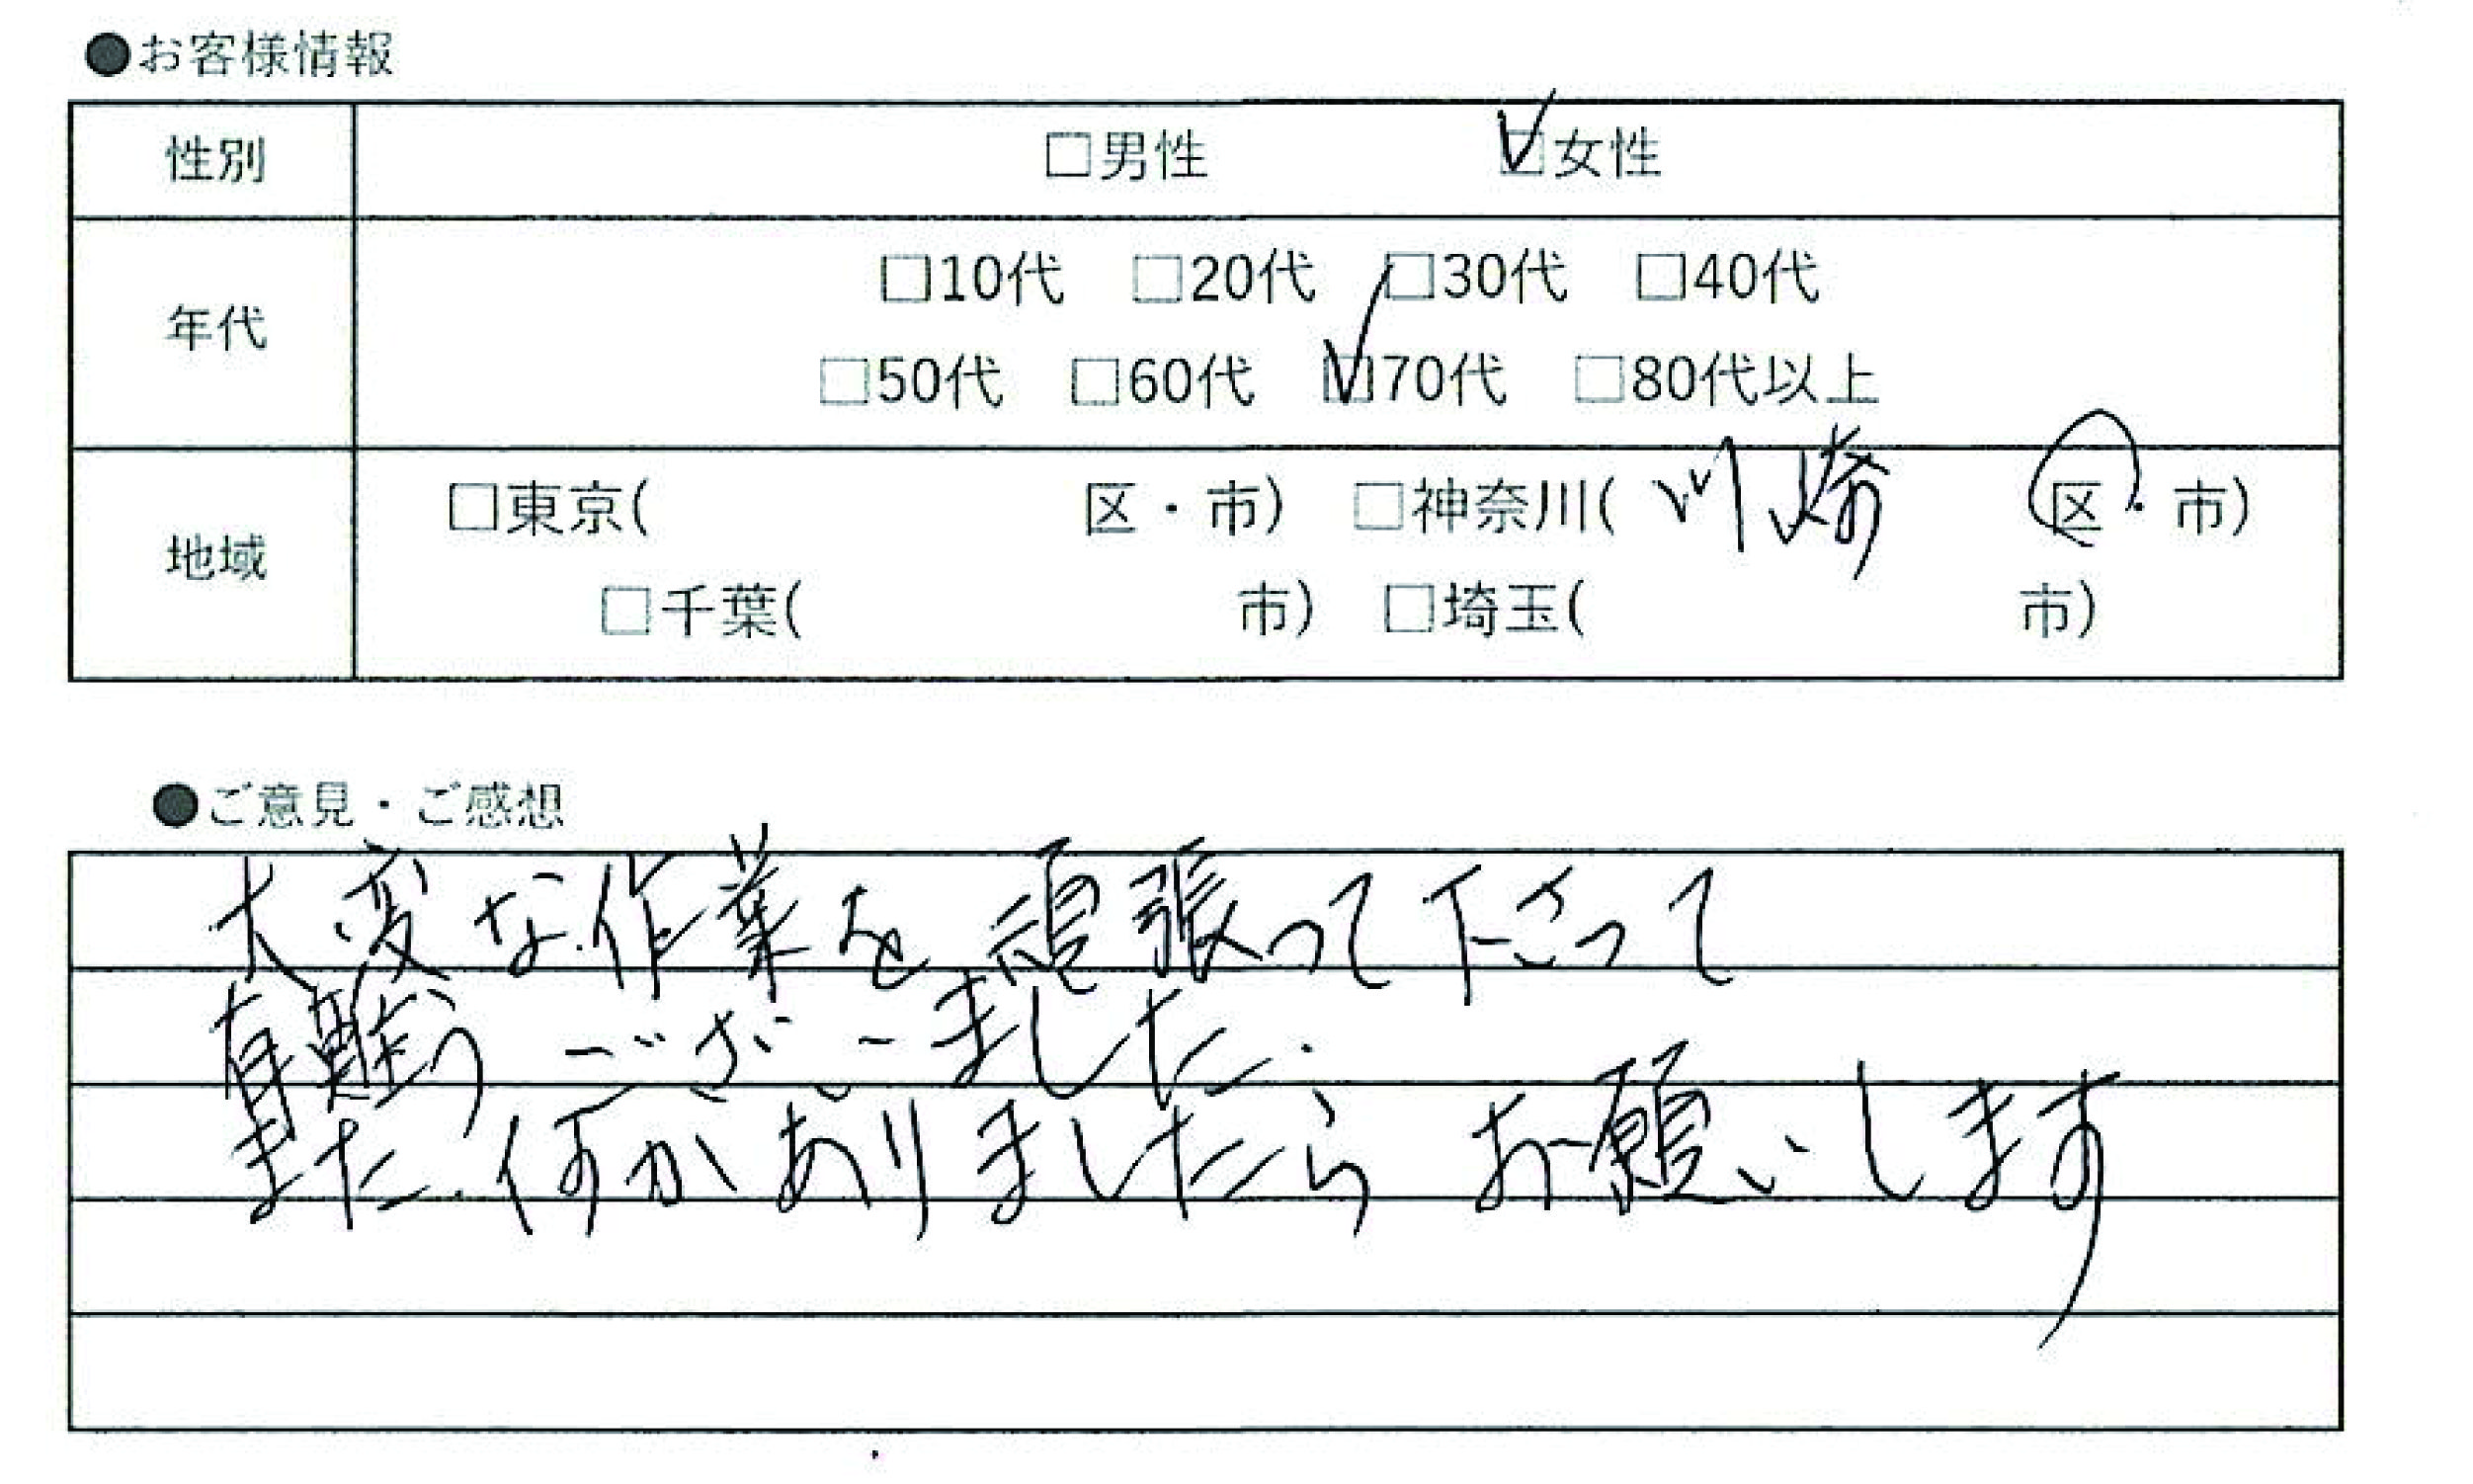 ●お客様情報
性別 □男性 ☑女性
年代 □10代 □20代 □30代 □40代
□50代 □60代 ☑70代 □80代以上
地域 □東京( 区・市) □神奈川( 川崎 区・市)
□千葉( 市) □埼玉( 市)
●ご意見・ご感想
大変な作業を頑張って下さって
有難うございました.
また何かありましたら お願いします